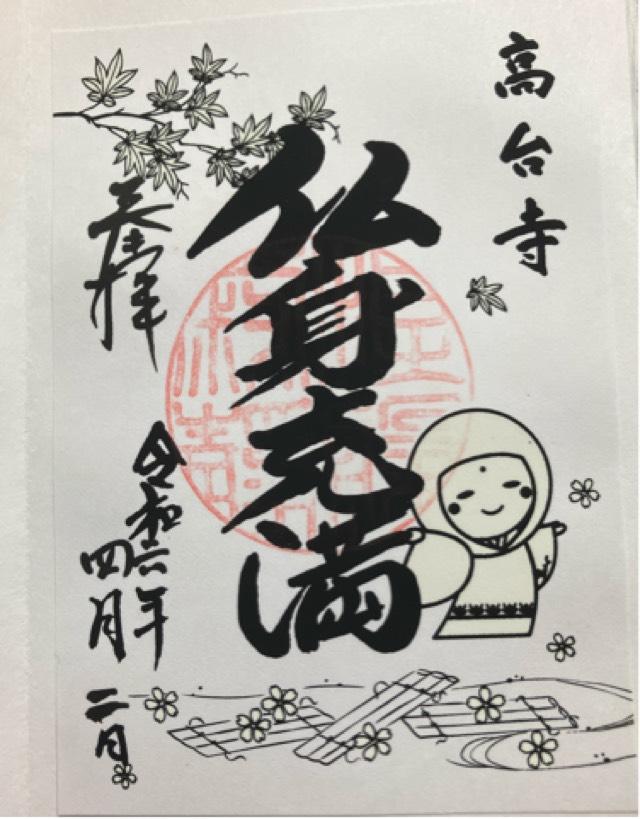 高台寺
仏身充満
奉拝
令和六年
四月二日